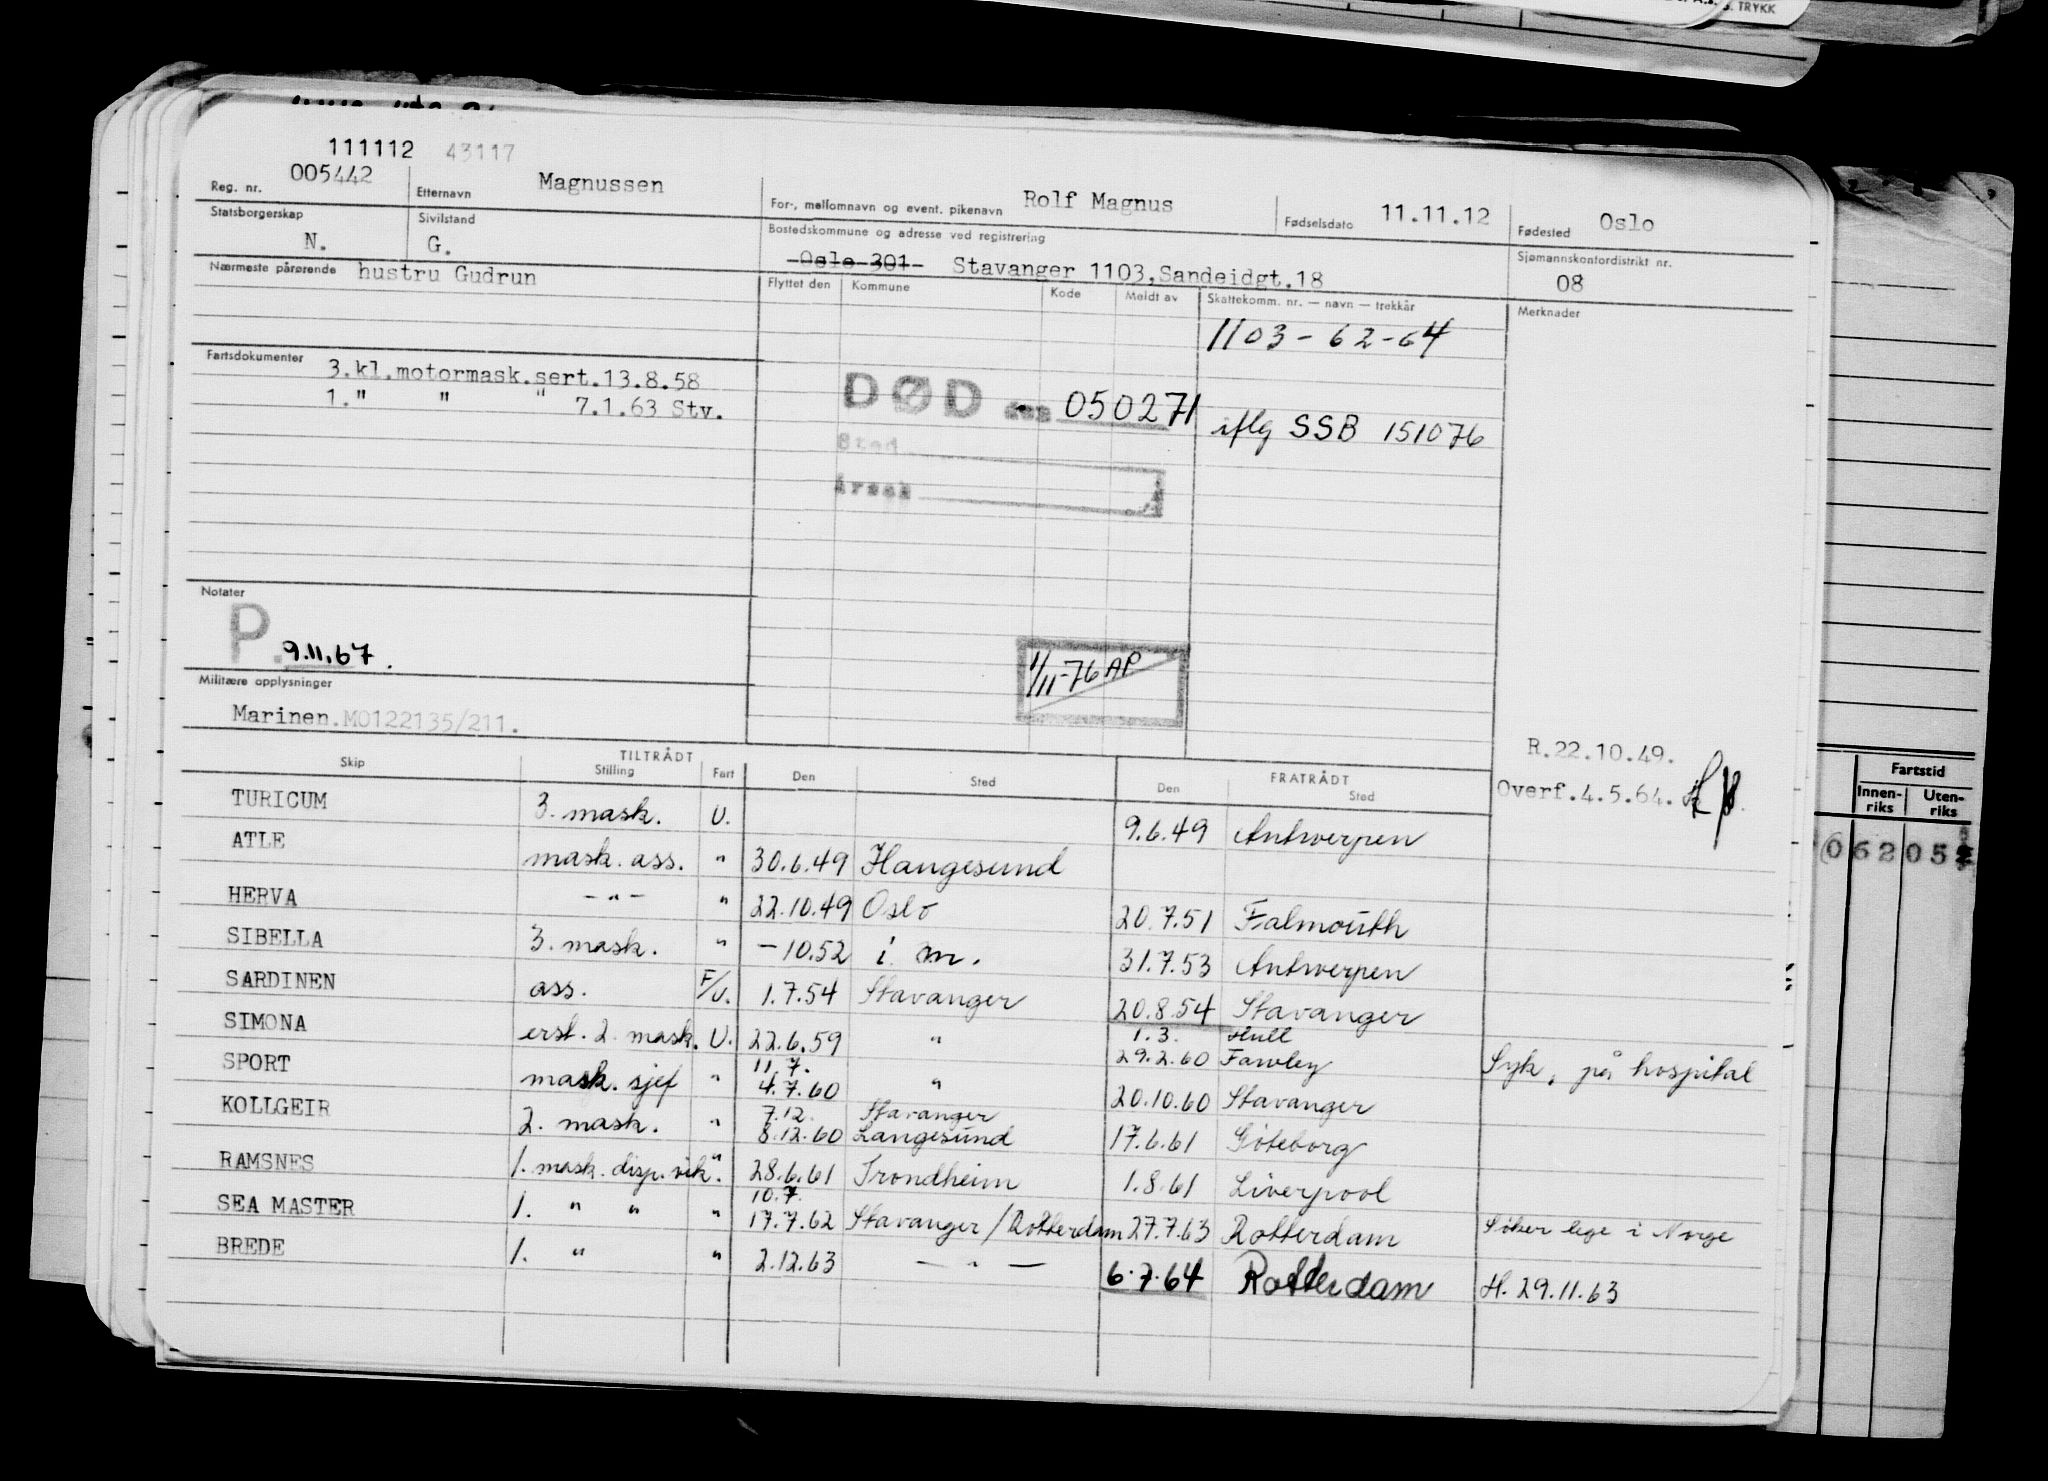 S. TRYKK
111112 43117
Reg. nr. 005442 Etternavn Magnussen For-, mellomnavn og event. pikenavn Rolf Magnus Fødselsdato 11.11.12 Fødested Oslo
Statsborgerskap N. Sivilstand G. Bostedskommune og adresse ved registrering Oslo 301 Stavanger 1103,Sandeidgt.18 Sjømannskontordistrikt nr. 08
Nærmeste pårørende hustru Gudrun Flyttet den Kommune Kode Meldt av Skattekomm. nr. — navn — trekkår Merknader
1103-62-64
Fartsdokumenter 3.kl.motormask.sert.13.8.58
1." " " 7.1.63 Stv.
DØD den 050271 iflg SSB 151076
Sted
Årsak
Notater
P. 9.11.67.
1/11-76 AP
Militære opplysninger
Marinen.MO122135/211.
R.22.10.49.
Overf.4.5.64.
Skip TILTRÅDT Stilling Fart Den Sted FRATRÅDT Den Sted
TURICUM 3. mask. U. 9.6.49 Antwerpen
ATLE mask. ass. " 30.6.49 Haugesund
HERVA -"- " 22.10.49 Oslo 20.7.51 Falmouth
SIBELLA 3. mask. " -10.52 i m. 31.7.53 Antwerpen
SARDINEN ass. F/U. 1.7.54 Stavanger 20.8.54 Stavanger
1.3. Hull
SIMONA erst. 2. mask. U. 22.6.59 " 29.2.60 Fawley Syk, på hospital
11.7.
SPORT mask. sjef " 4.7.60 " 20.10.60 Stavanger
7.12. Stavanger
KOLLGEIR 2. mask. " 8.12.60 Langesund 17.6.61 Göteborg
RAMSNES 1. mask. disp. vik. " 28.6.61 Trondheim 1.8.61 Liverpool
10.7.
SEA MASTER 1. " " " 17.7.62 Stavanger / Rotterdam 27.7.63 Rotterdam Söker lege i Norge
BREDE 1. " " 2.12.63 — " — 6.7.64 Rotterdam H. 29.11.63
Fartstid
Innen-riks Uten-riks
062 05